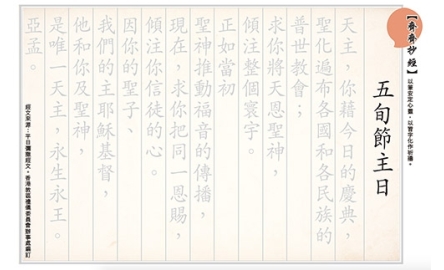 【齊齊抄經】
以筆安定心靈,以習字化作祈禱。
五旬節主日
天主,你藉今日的慶典,
聖化遍布各國和各民族的
普世教會;
求你將天恩聖神,
傾注整個寰宇。
正如當初
聖神推動福音的傳播,
現在,求你把同一恩賜,
傾注你信徒的心。
因你的聖子、
我們的主耶穌基督,
他和你及聖神,
是唯一天主,永生永王。
亞孟。
經文來源:平日彌撒經文,香港教區禮儀委員會辦事處編訂